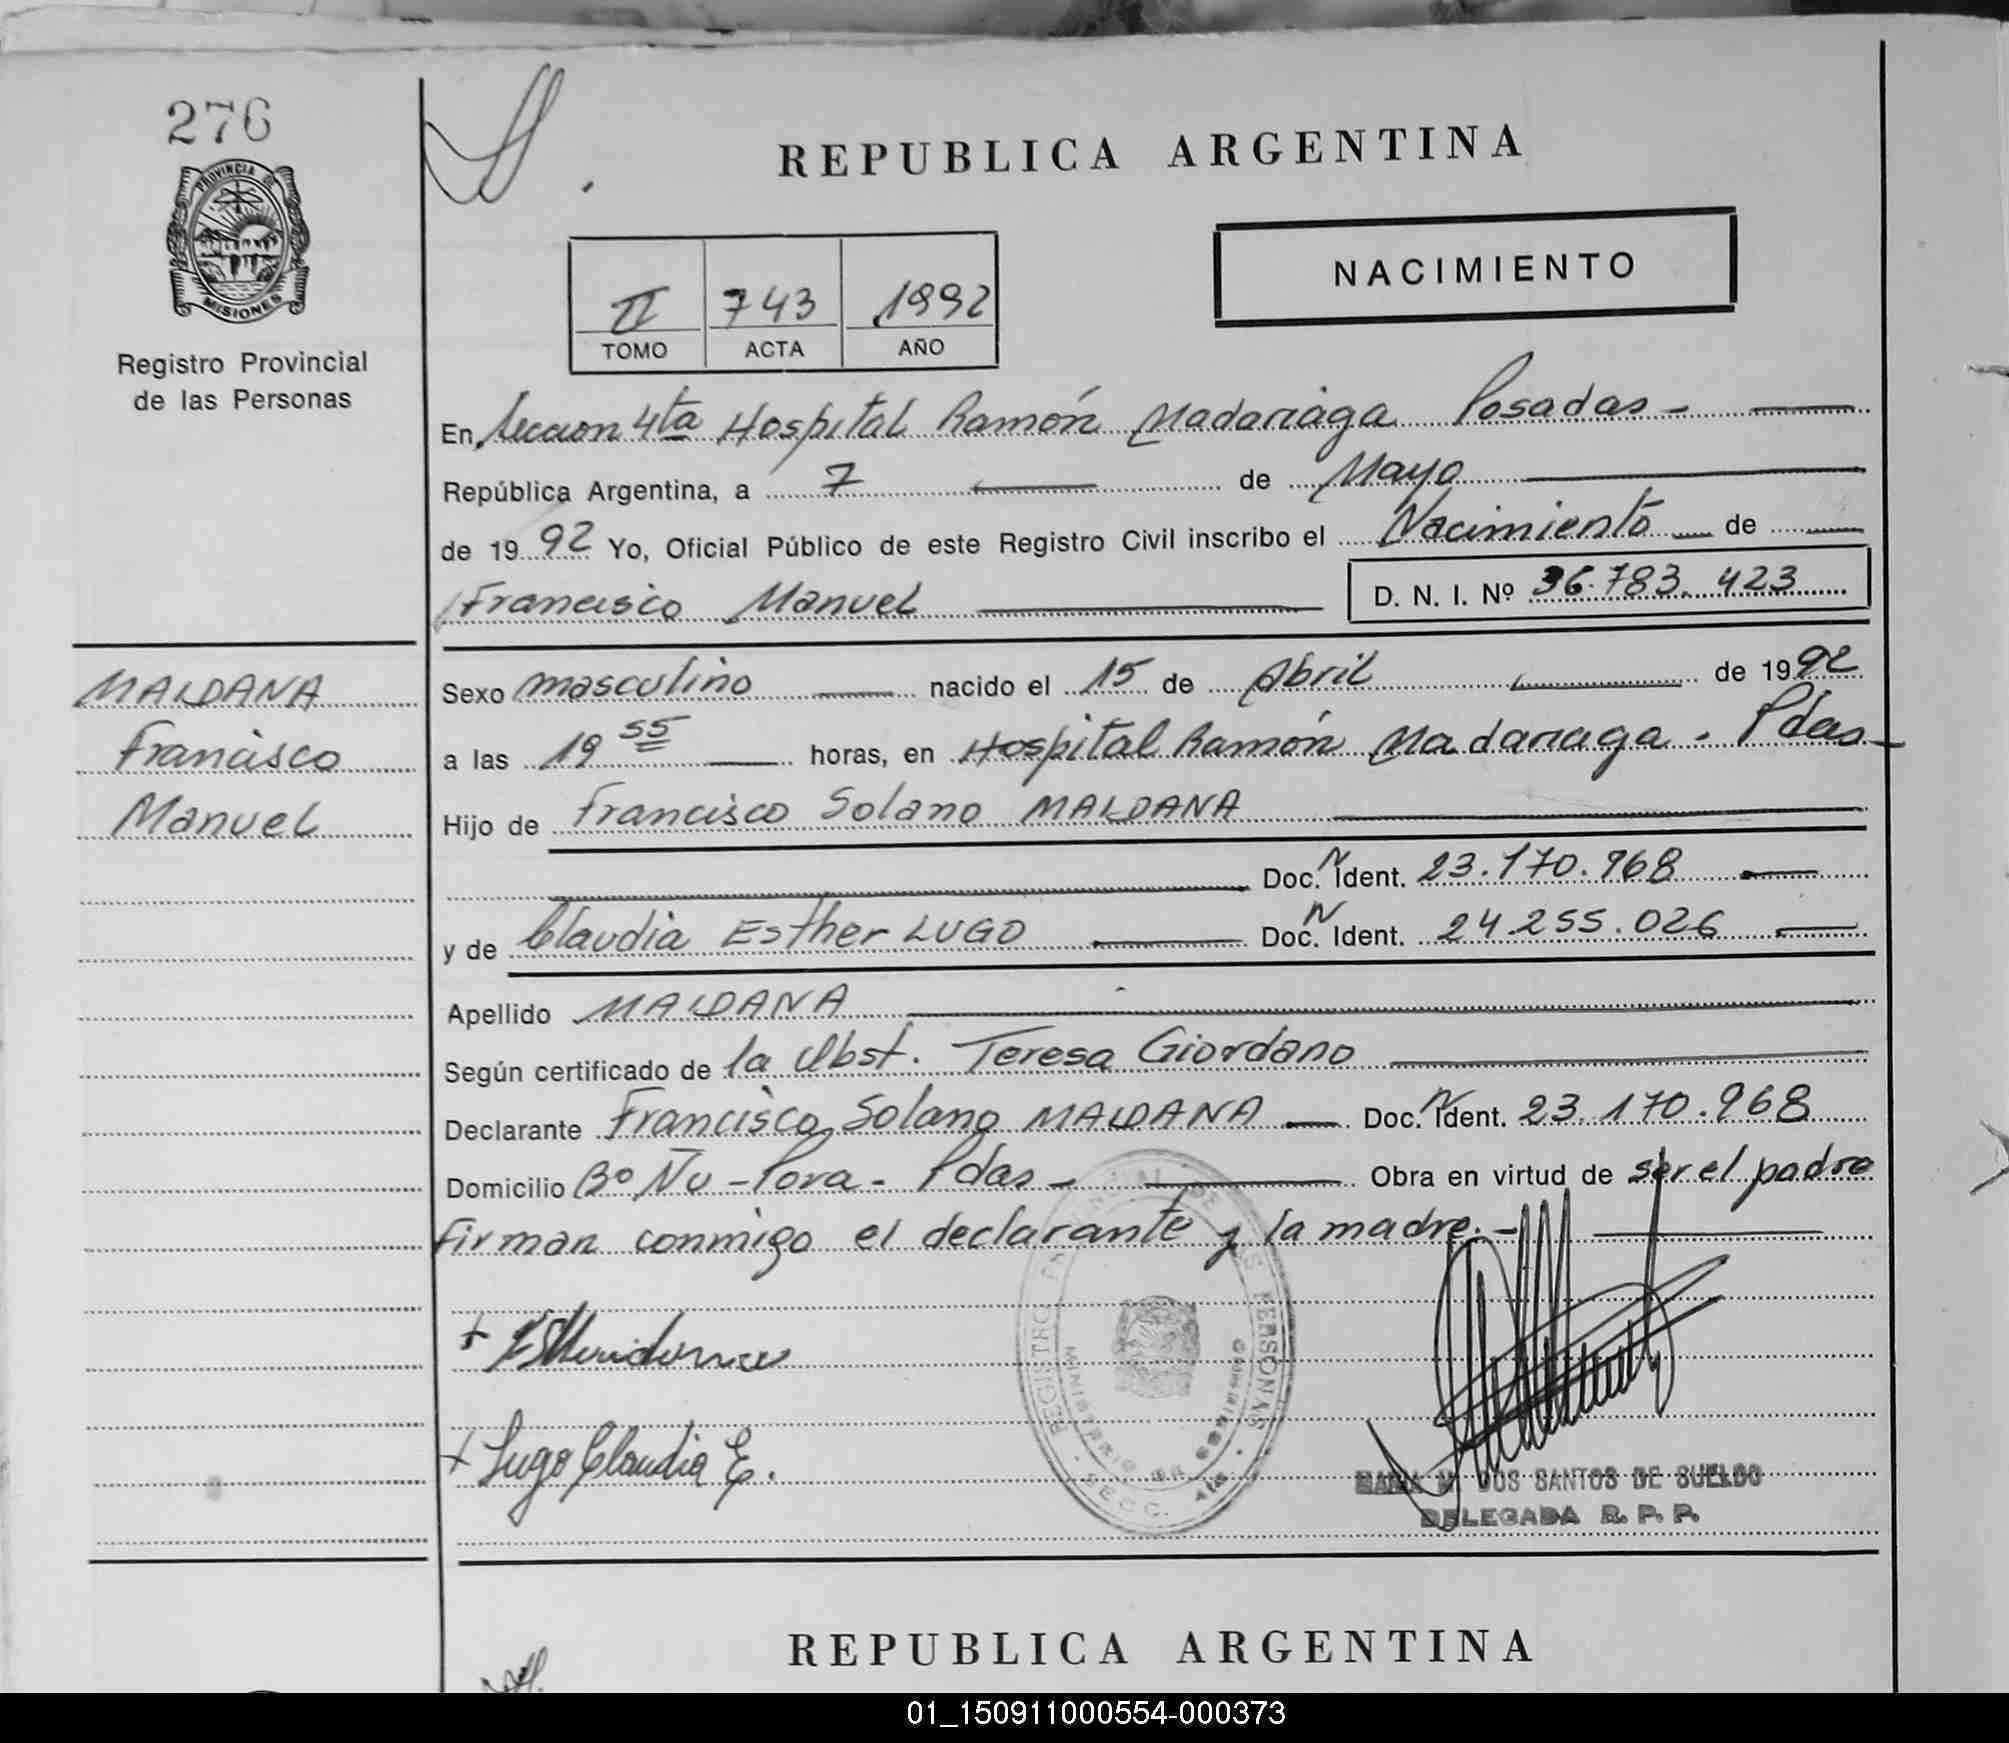 276
PROVINCIA DE
MISIONES
Registro Provincial
de las Personas
REPUBLICA ARGENTINA
NACIMIENTO
II 743 1992
TOMO ACTA AÑO
En Seccion 4ta Hospital Ramón Madariaga Posadas -
República Argentina, a 7 de Mayo
de 1992 Yo, Oficial Público de este Registro Civil inscribo el Nacimiento de
Francisco Manuel D. N. I. Nº 36.783.423
MALDANA
Francisco
Manuel
Sexo masculino nacido el 15 de Abril de 1992
a las 19 55 horas, en Hospital Ramón Madariaga - Pdas -
Hijo de Francisco Solano MALDANA
Doc. N Ident. 23.170.968
y de Claudia Esther LUGO Doc. N Ident. 24.255.026
Apellido MALDANA
Según certificado de la Obst. Teresa Giordano
Declarante Francisco Solano MALDANA Doc. N Ident. 23.170.968
Domicilio Bº Ñu - Pora - Pdas - Obra en virtud de ser el padre
firman conmigo el declarante y la madre. -
+ Lugo Claudia E.
REGISTRO PROVINCIAL DE LAS PERSONAS
MINISTERIO DE GOBIERNO
SECC. 4ta
MARIA M. DOS SANTOS DE SUELDO
DELEGADA R. P. P.
REPUBLICA ARGENTINA
01_150911000554-000373